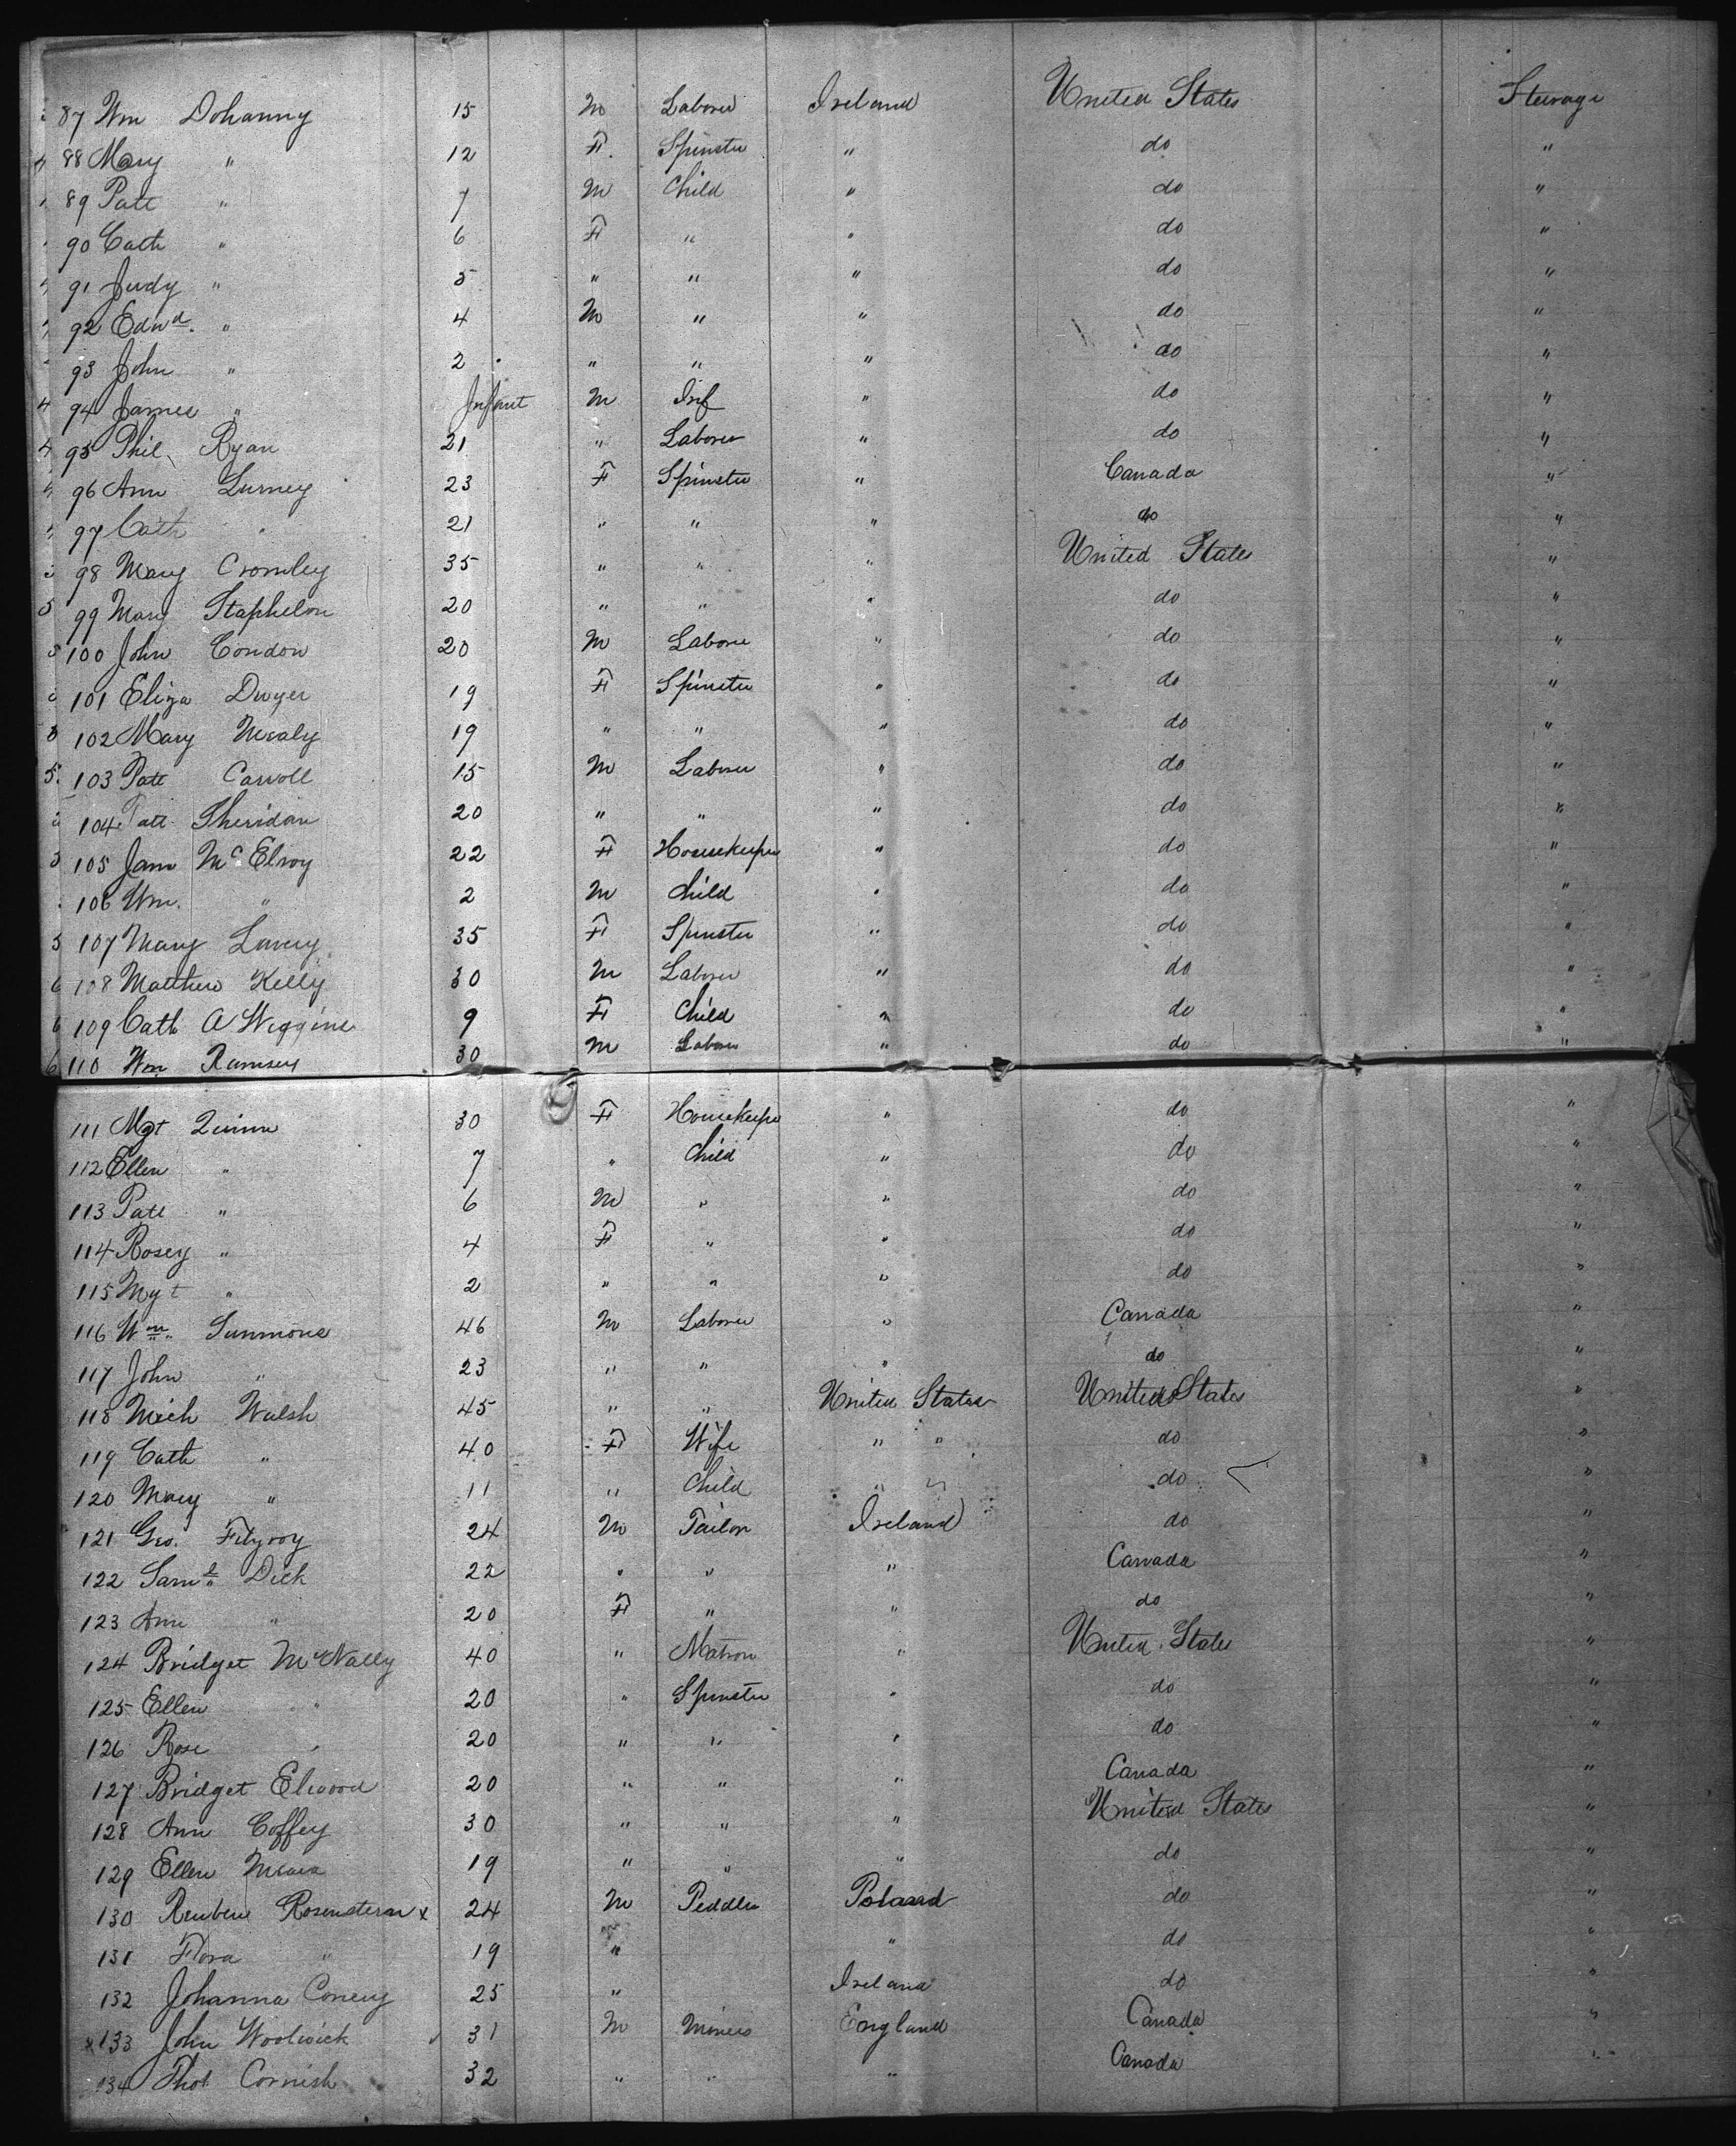 87 Wm Dohanny 15 M Laborer Ireland United States Steerage
88 Mary " 12 F. Spinster " do "
89 Patt " 7 M Child " do "
90 Cath " 6 F " " do "
91 Judy " 5 " " " do "
92 Edwd. " 4 M " " do "
93 John " 2 " " " do "
94 James " Infant M Inf " do "
95 Phil Ryan 21 " Laborer " do "
96 Ann Lurney 23 F Spinster " Canada "
97 Cath " 21 " " " do "
98 Mary Cromley 35 " " " United States "
99 Mary Staphelon 20 " " " do "
100 John Condon 20 M Laborer " do "
101 Eliza Dwyer 19 F Spinster " do "
102 Mary 19 " " " do "
103 Patt Carroll 15 M Laborer " do "
104 Patt Sheridan 20 " " " do "
105 Jane McElroy 22 F Housekeeper " do "
106 Wm. " 2 M Child " do "
107 Mary Lavery 35 F Spinster " do "
108 Matthew Kelly 30 M Laborer " do "
109 Cath A Wiggins 9 F Child " do "
110 Wm Ramsey 30 M Laborer " do "
111 Mgt Quinn 30 F Housekeeper " do "
112 Ellen " 7 " Child " do "
113 Patt " 6 M " " do "
114 Rosey " 4 F " " do "
115 Mgt " 2 " " " do "
116 Wm. 46 M Laborer " Canada "
117 John " 23 " " " do "
118 Mich Walsh 45 " " United States United States "
119 Cath " 40 F Wife " " do "
120 Mary " 11 " Child " " do "
121 Geo. Fitzroy 24 M Tailor Ireland do "
122 Saml Dick 22 " " " Canada "
123 Ann " 20 F " " do "
124 Bridget McNally 40 " Matron " United States "
125 Ellen " 20 " Spinster " do "
126 Rose " 20 " " " do "
127 Bridget Elwood 20 " " " Canada "
128 Ann Coffey 30 " " " United States "
129 Ellen 19 " " " do "
130 Reuben Rosenstern x 24 M Peddler Poland do "
131 Flora " 19 " " do "
132 Johanna Coneny 25 " Ireland do "
x 133 John Woolwick 31 M Miners England Canada "
134 Thos Cornish 32 " " " Canada "